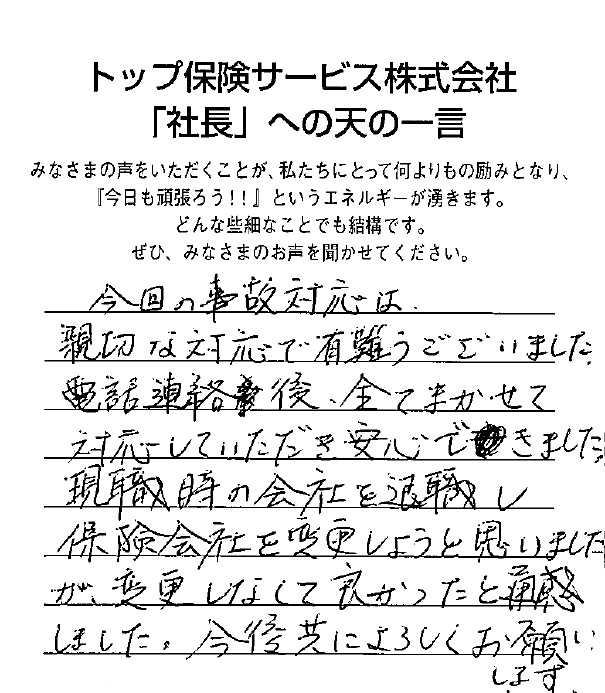 トップ保険サービス株式会社
「社長」への天の一言
みなさまの声をいただくことが、私たちにとって何よりもの励みとなり、
『今日も頑張ろう!!』というエネルギーが湧きます。
どんな些細なことでも結構です。
ぜひ、みなさまのお声を聞かせてください。
今回の事故対応は、
親切な対応で有難うございました。
電話連絡後、全てまかせて
対応していただき安心できました。
現職時の会社を退職し
保険会社を変更しようと思いました
が、変更しなくて良かったと痛感
しました。今後共によろしくお願い
します